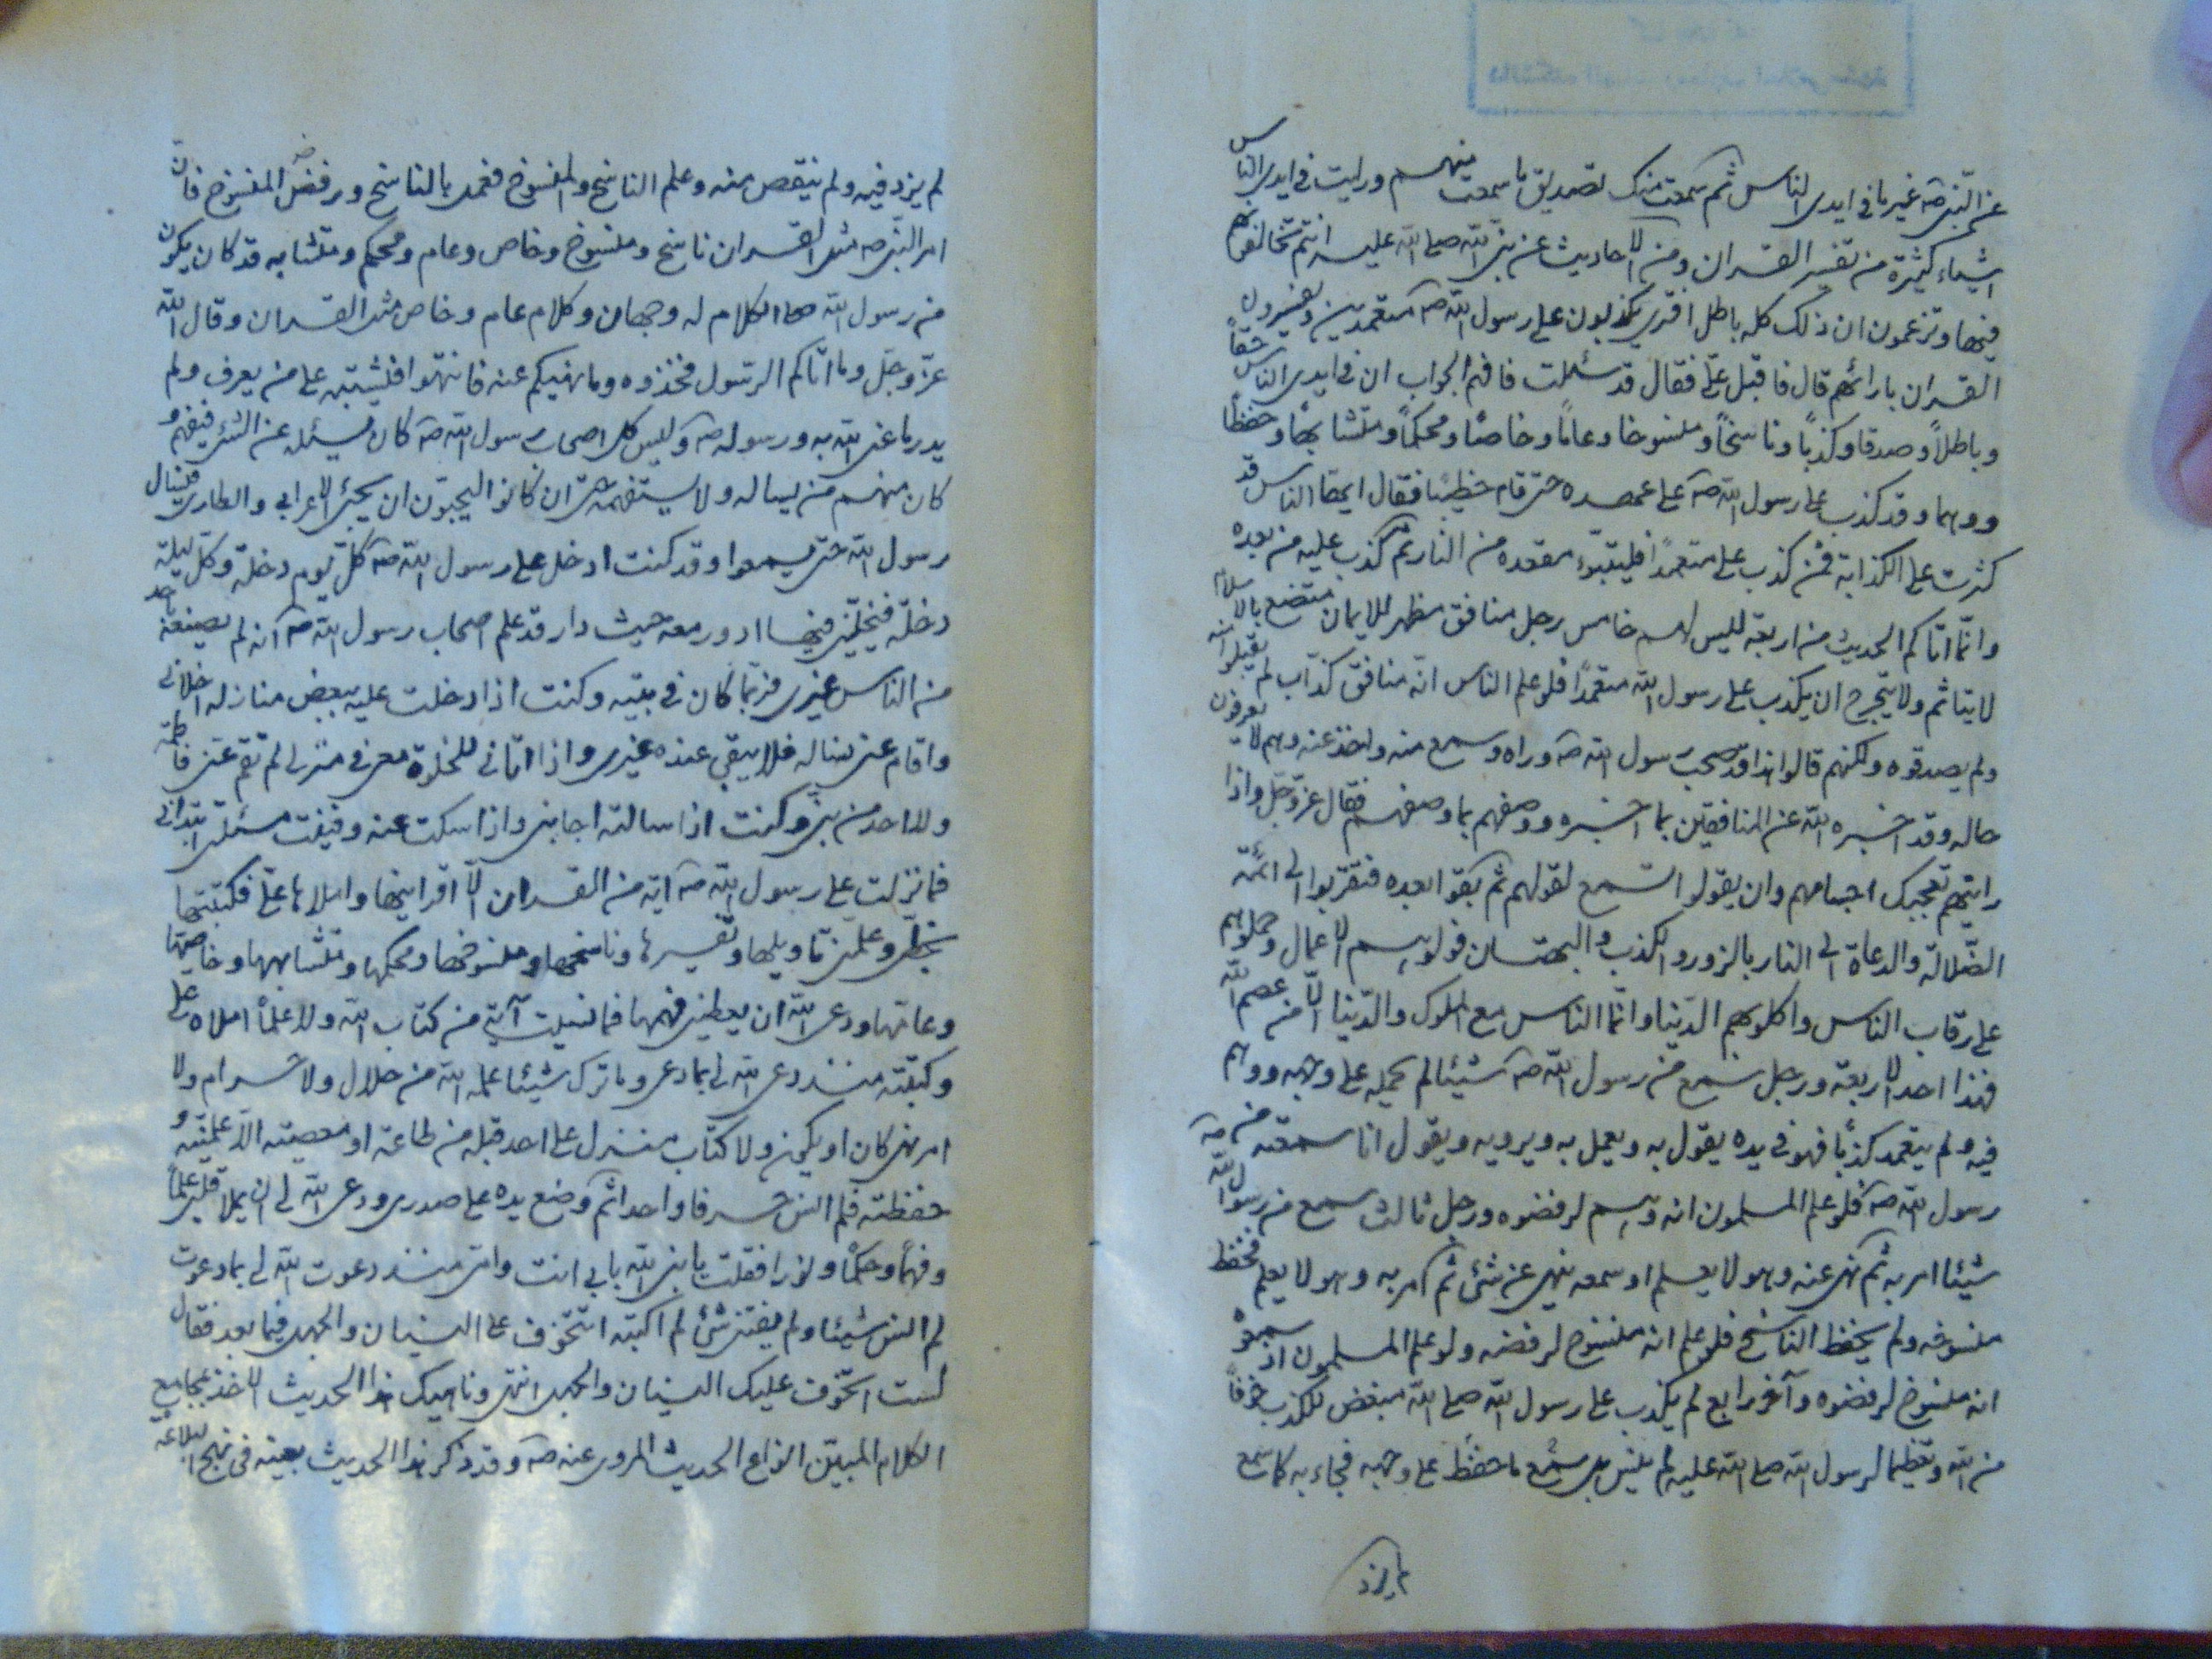 عن النبی صه غیر ما فی ایدی الناس ثم سمعت منک تصدیق ما سمعت منهم ورایت فی ایدی الناس
اشیاء کثیرة من تفسیر القران ومن الاحادیث عن نبی الله صلی الله علیه انتم تخالفونهم
فیها وتزعمون ان ذلک کله باطل افتری یکذبون علی رسول الله صه متعمدین ویفسرون
القران بارائهم قال فاقبل علی فقال قد سئلت فافهم الجواب ان فی ایدی الناس حقاً
وباطلاً وصدقا وکذباً وناسخاً ومنسوخا وعاماً وخاصاً ومحکماً ومتشابهاً وحفظاً
ووهما وقد کذب علی رسول الله صه علی عهده حتی قام خطیباً فقال ایها الناس قد
کثرت علی الکذابة فمن کذب علی متعمداً فلیتبوء مقعده من النار ثم کذب علیه من بعده
وانما اتاکم الحدیث من اربعة لیس لهم خامس رجل منافق مظهر للایمان متصنع بالاسلام
لا یتاثم ولا یتحرج ان یکذب علی رسول الله متعمداً فلو علم الناس انه منافق کذاب لم یقبلوا منه
ولم یصدقوه ولکنهم قالوا هذا قد صحب رسول الله صه وراه وسمع منه واخذ عنه وهم لا یعرفون
حاله وقد اخبره الله عن المنافقین بما اخبره ووصفهم بما وصفهم فقال عز وجل واذا
رایتهم تعجبک اجسامهم وان یقولوا تسمع لقولهم ثم بقوا بعده فتقربوا الی ائمة
الضلالة والدعاة الی النار بالزور والکذب والبهتان فولوهم الاعمال وحملوهم
علی رقاب الناس واکلوا بهم الدنیا وانما الناس مع الملوک والدنیا الا من عصم الله
فهذا احد الاربعة ورجل سمع من رسول الله صه شیئا لم یحمله علی وجهه ووهم
فیه ولم یتعمد کذباً فهو فی یده یقول به ویعمل به ویرویه ویقول انا سمعته من
رسول الله صه فلو علم المسلمون انه وهم لرفضوه ورجل ثالث سمع من رسول الله صه
شیئا امر به ثم نهی عنه وهو لا یعلم او سمعه ینهی عن شئ ثم امر به وهو لا یعلم فحفظ
منسوخه ولم یحفظ الناسخ فلو علم انه منسوخ لرفضه ولو علم المسلمون اذ سمعوه
انه منسوخ لرفضوه وآخر رابع لم یکذب علی رسول الله صلی الله مبغض للکذب خوفاً
من الله وتعظیما لرسول الله صلی الله علیه لم ینس بل سمع ما حفظ علی وجهه فجاء به کما سمع
لم یزد
لم یزد فیه ولم ینقص منه وعلم الناسخ والمنسوخ فعمل بالناسخ ورفض المنسوخ فان
امر النبی صه مثل القران ناسخ ومنسوخ وخاص وعام ومحکم ومتشابه قد کان یکون
من رسول الله صه الکلام له وجهان وکلام عام وخاص مثل القران وقال الله
عز وجل وما اتاکم الرسول فخذوه وما نهیکم عنه فانتهوا فیشتبه علی من یعرف ولم
یدر ما عنی الله به ورسوله صه ولیس کل اصحاب رسول الله صه کان یسئله عن الشئ فیفهم و
کان منهم من یساله ولا یستفهمه حتی ان کانوا لیحبون ان یجئ الاعرابی والطاری فیسال
رسول الله حتی یسمعوا وقد کنت ادخل علی رسول الله صه کل یوم دخلة وکل لیلة
دخلة فیخلینی فیها ادور معه حیث دار قد علم اصحاب رسول الله صه انه لم یصنعه باحد
من الناس غیری فربما کان فی بیته وکنت اذا دخلت علیه ببعض منازله اخلانی
واقام عنی نساله فلا یبقی عنده غیری واذا اتانی للخلوة معی فی منزلی لم تقم عنی فاطمة
ولا احد من بنی وکنت اذا سالته اجابنی واذا سکت عنه وفنیت مسئلتی ابتدانی
فما نزلت علی رسول الله صه ایة من القران الا اقرانیها واملاها علی فکتبتها
بخطی وعلمنی تاویلها وتفسیرها وناسخها ومنسوخها ومحکمها ومتشابهها وخاصها
وعامها ودعی الله ان یعطینی فهمها فما نسیت آیة من کتاب الله ولا علماً املاه علی
وکتبته منذ دعی الله لی بما دعی وما ترک شیئا علمه الله من حلال ولا حرام ولا
امر نهی کان او یکون ولا کتاب منزل علی احد قبله من طاعة او معصیة الا علمنیه و
حفظته فلم انس حرفا واحدا ثم وضع یده علی صدری ودعی الله لی ان یملا قلبی علماً
وفهماً وحکماً ونورا فقلت یا نبی الله بابی انت وامی منذ دعوت الله لی بما دعوت
لم انس شیئا ولم یفتنی شئ لم اکتبه اتتخوف علی النسیان والجهل فیما بعد فقال
لست اتخوف علیک النسیان والجهل انتهی وناهیک هذا الحدیث الاخذ بمجامع
الکلام المبین انواع الحدیث المروی عنه صه وقد ذکر هذا الحدیث بعینه فی نهج البلاغه